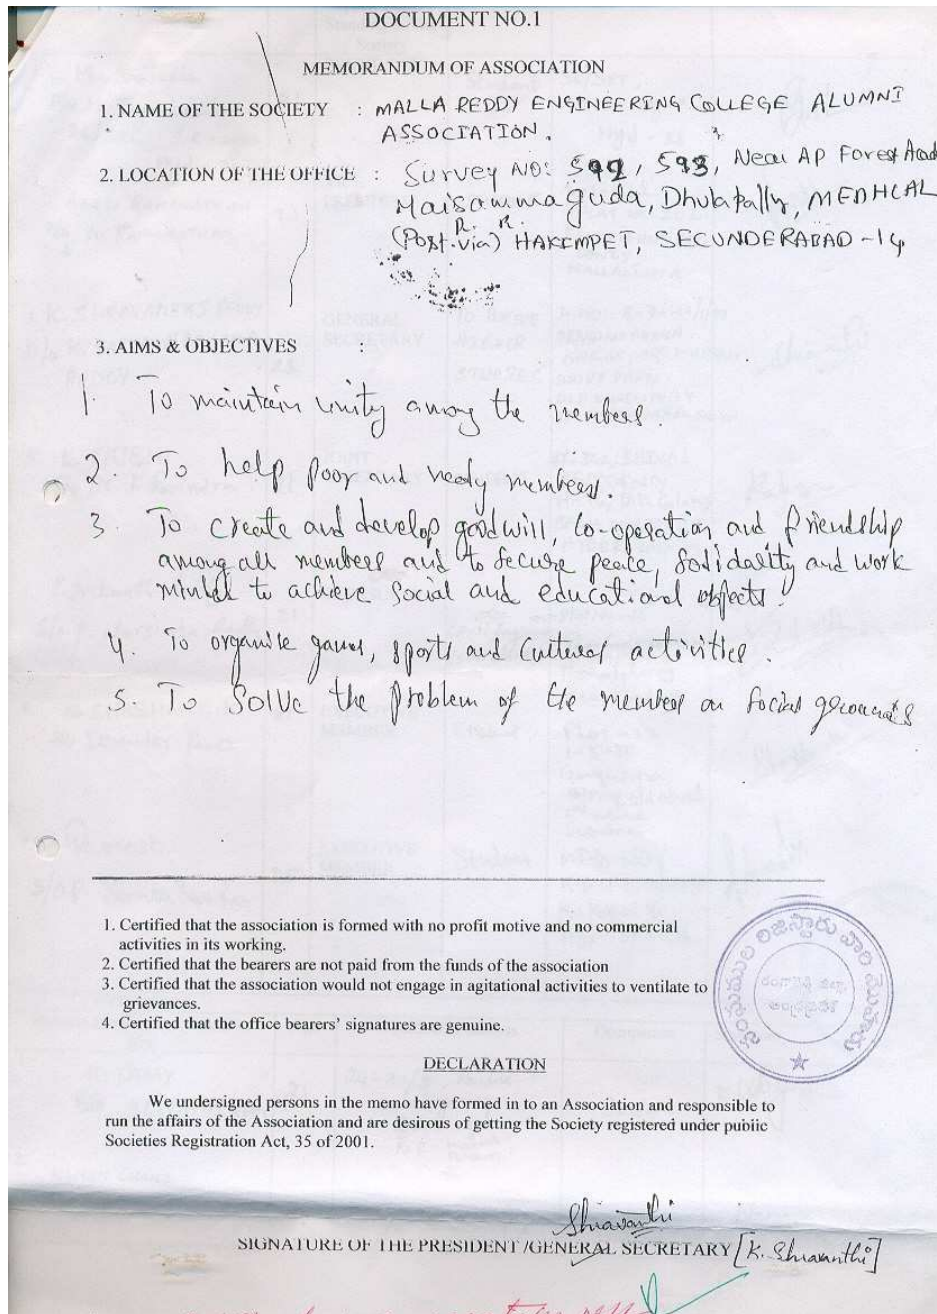 DOCUMENT NO.1
MEMORANDUM OF ASSOCIATION
1. NAME OF THE SOCIETY : MALLA REDDY ENGINEERING COLLEGE ALUMNI
ASSOCIATION.
2. LOCATION OF THE OFFICE : Survey NO: 599, 593, Near AP Forest Acad
Maisammaguda, Dhulapally, MEDHCAL
(Post via) HAKIMPET, SECUNDERABAD -14
R. R.
3. AIMS & OBJECTIVES :
1. To maintain unity among the members.
2. To help poor and needy members.
3. To create and develop goodwill, co-operation and friendship
among all members and to secure peace, solidality and work
to achieve social and educational objects.
4. To organise games, sports and cultural activities.
5. To Solve the problem of the member on social grounds
1. Certified that the association is formed with no profit motive and no commercial
activities in its working.
2. Certified that the bearers are not paid from the funds of the association
3. Certified that the association would not engage in agitational activities to ventilate to
grievances.
4. Certified that the office bearers' signatures are genuine.
DECLARATION
We undersigned persons in the memo have formed in to an Association and responsible to
run the affairs of the Association and are desirous of getting the Society registered under public
Societies Registration Act, 35 of 2001.
Shravanthi
SIGNATURE OF THE PRESIDENT /GENERAL SECRETARY [K. Shravanthi]